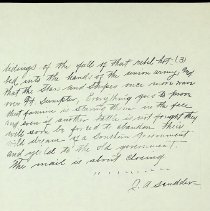 tidings of the fall of that rebel hot- (3)
bed into the hands of the union army and
that the Stars and Stripes once more wave
over Ft Sumpter. Everything goes to prove
that famine is staring them in the face
any even if another battle is not fought they
will soon be forced to abandon their
wild dreams of a Southern Government
and yield to the old government.
The mail is about closing
J. A.